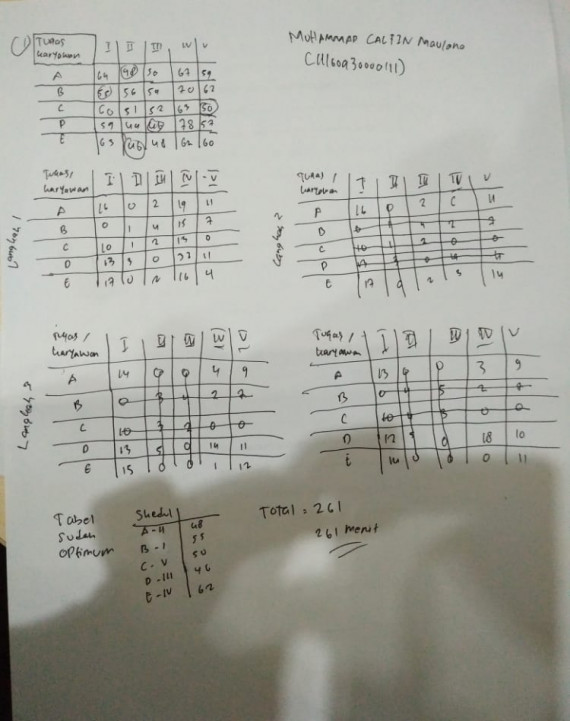 1) Tugas
Karyawan I II III IV V
A 64 48 50 67 59
B 55 56 59 70 62
C 60 51 52 63 50
D 59 49 46 78 57
E 63 46 48 62 60
MUHAMMAD CALF3N Maulana
Langkah 1
Tugas/
karyawan I II III IV V
A 16 0 2 19 11
B 0 1 4 15 7
C 10 1 2 13 0
D 13 3 0 32 11
E 17 0 2 16 4
Langkah 2
Tugas /
karyawan I II III IV V
A 16 0 2 6 11
B 0 1 4 2 7
C 10 1 2 0 0
D
E 17 0 2 3 14
Langkah 3
Tugas /
karyawan I II III IV V
A 14 0 0 4 9
B 0 3 4 2 7
C 10 3 2 0 0
D 13 5 0 14 11
E 15 0 0 1 12
Tugas /
karyawan I II III IV V
A 13 0 0 3 9
B 0 4 5 2 7
C 10 4 3 0 0
D 12 5 0 18 10
E 14 0 0 0 11
Tabel
sudah
optimum
Shedul
A - II 48
B - I 55
C - V 50
D - III 46
E - IV 62
Total = 261
261 menit